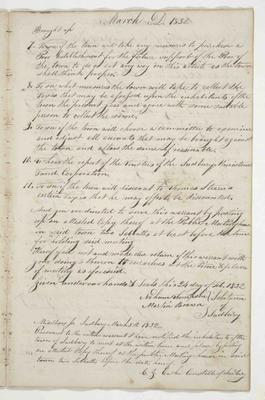 March A.D. 1832
Brought up
7. To see if the town will take any measures to purchase a
Poor Establishment for the future support of the Poor of
the town, or to act any way on this article as the town
shall think proper
8. To see what measures the town will take to collect the
Taxes that may be assessed upon the inhabitants of the
town the present year and agree with some suitable
person to collect the same.
9. To see if the town will choose a committee to examine
and adjust all accounts that may be brought against
the town and allow the same if reasonable
10. To hear the report of the Trustees of the Sudbury Provisioners
Fund Corporation
11. To see if the town will discount to Thomas Stearns
certain taxes that he may of to be discounted.
And you are directed to serve this warrant by posting
up an attested copy thereof at the Public Meeting house
in said town two Sabbaths at least before the time
for holding said meeting
Hereof fail not and make due return of this warrant with
your doings thereon to ourselves at the time & place
of meeting as aforesaid.
Given under our hands & seals this 24 day of Feb. 1832
Selectmen
of
Sudbury
Middlesex ss Sudbury March 5th 1832
Pursuant to the within warrant I have notified the inhabitants of the
town of Sudbury to meet at the within time and place by posting
an attested copy thereof at the public Meeting house in said
town two Sabbaths before the date
Constable of Sudbury